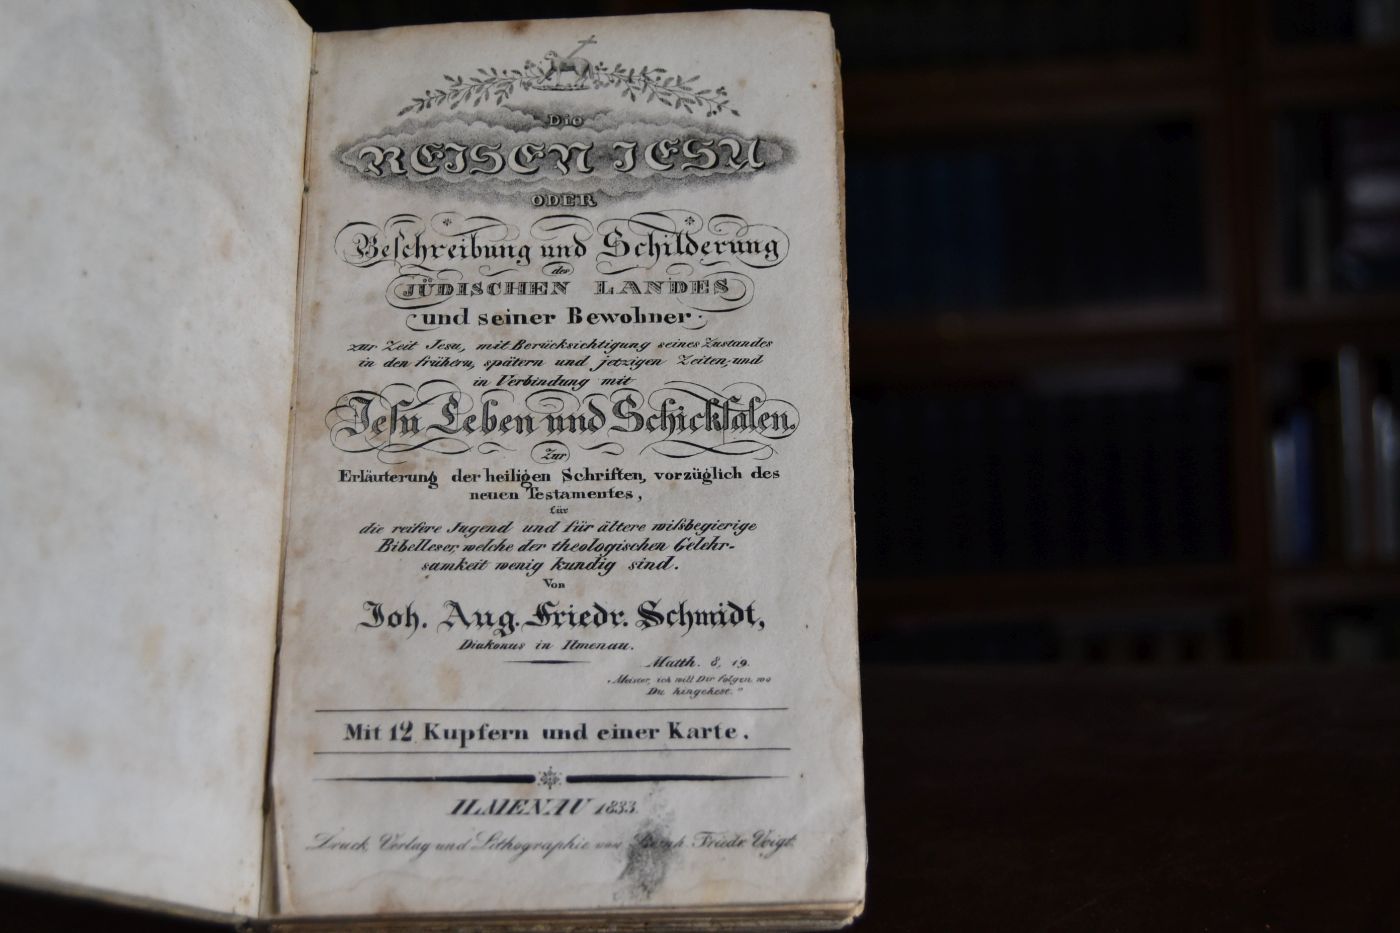 Die
REISEN JESU
ODER
Beschreibung und Schilderung
des
JÜDISCHEN LANDES
und seiner Bewohner
zur Zeit Jesu, mit Berücksichtigung seines Zustandes
in den frühern, spätern und jetzigen Zeiten, und
in Verbindung mit
Jesu Leben und Schicksalen.
Zur
Erläuterung der heiligen Schriften, vorzüglich des
neuen Testamentes,
für
die reifere Jugend und für ältere wißbegierige
Bibelleser, welche der theologischen Gelehr-
samkeit wenig kundig sind.
Von
Joh. Aug. Friedr. Schmidt,
Diakonus in Ilmenau.
Matth. 8, 19.
„Meister, ich will Dir folgen, wo
Du hingehest.“
Mit 12 Kupfern und einer Karte.
ILMENAU 1833.
Druck, Verlag und Lithographie von Bernh. Friedr. Voigt.